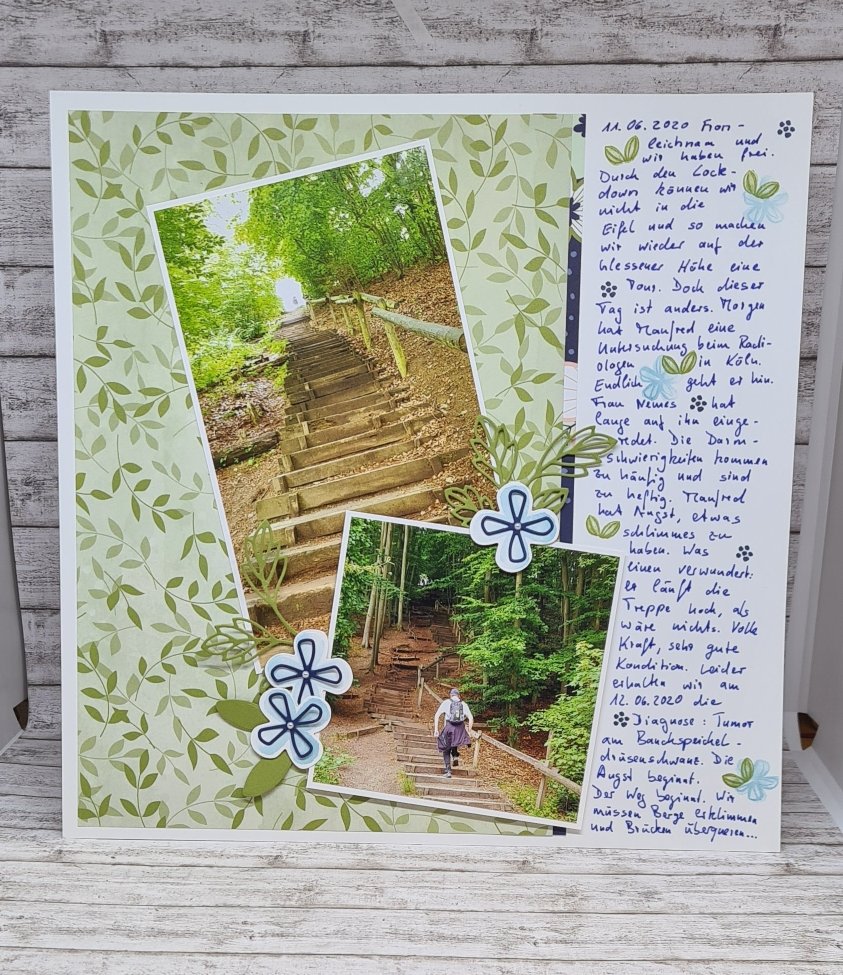 11.06.2020 Fron-
leichnam und
wir haben frei.
Durch den Lock-
down können wir
nicht in die
Eifel und so machen
wir wieder auf der
Glessener Höhe eine
Tour. Doch dieser
Tag ist anders. Morgen
hat Manfred eine
Untersuchung beim Radi-
ologen in Köln.
Endlich geht er hin.
Frau Nemes hat
lange auf ihn einge-
redet. Die Darm-
schwierigkeiten kommen
zu häufig und sind
zu heftig. Manfred
hat Angst, etwas
schlimmes zu
haben. Was
einen verwundert:
er läuft die
Treppe hoch, als
wäre nichts. Volle
Kraft, sehr gute
Kondition. Leider
erhalten wir am
12.06.2020 die
Diagnose: Tumor
am Bauchspeichel-
drüsenschwanz. Die
Angst beginnt.
Der Weg beginnt. Wir
müssen Berge erklimmen
und Brücken überqueren...